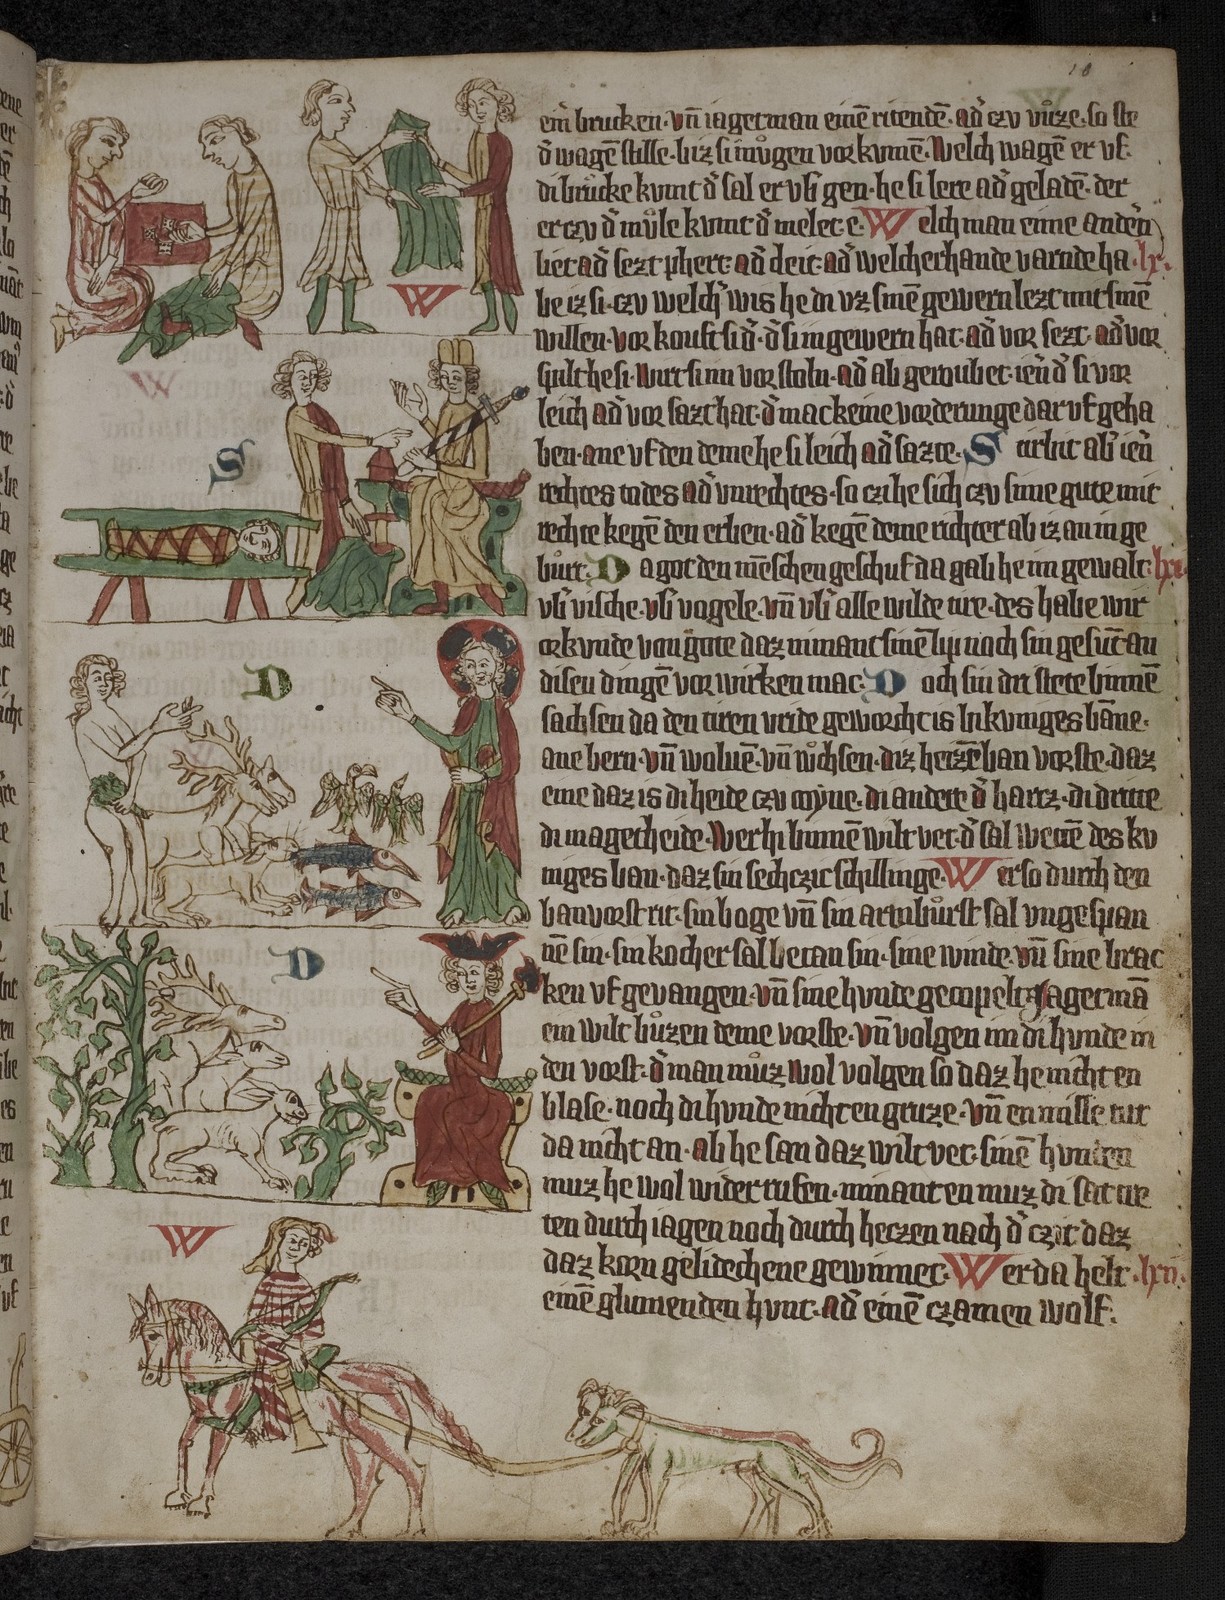 10
ein brucken. vn̄ iagerman einē ritendē. ad̓ czv vůze. so ste
d̓ wagē stille. biz si mvgen vorkvmē. Welch wagē er vf
di brucke kvmt d̓ sal er vb̓ gen. he si lere ad̓ geladē. der
er czv d̓ mvle kvmt d̓ melet e. Welch man eime andern
liet ad̓ sezt phert. ad̓ cleit. ad̓ welcherhande varnde ha lx.
be iz si. czv welch̓ wis he di vz sinē gewern lezt mit sinē
willen. vor kouft si d̓. d̓ si in gewern hat. ad̓ vor sezt. ad̓ vor
spilt he si. Wirt si im vor stoln. ad̓ ab geroubet. ien̄ d̓ si vor
leich ad̓ vor sazt hat. d̓ mac keine vorderunge dar vf geha
ben. ane vf den deme he si leich ad̓ sazte. Stirbit ab̓ ien̄
rechtes todes ad̓ vnrechtes. so czihe sich czv sime gute mit
rechte kegē den erben. ad̓ kegē deme richter ab iz an in ge
burt. Da got den mēschen geschuf da gab he im gewalt. lxi
vb̓ vische. vb̓ vogele. vn̄ vb̓ alle wilde tire. des habe wir
orkvnde von gote daz nimant sinē lip noch sin gesūt an
disen dingē vor wirken mac. Doch sin dri stete binnē
sachsen da den tiren vride geworcht is bi kvniges bāne.
ane bern. vn̄ wolvē. vn̄ vůchsen. diz heizē ban vorste. daz
eine daz is di heide czv coyne. di andere d̓ hartz. di dritte
di magetheide. Wer hi binnē wilt vet. d̓ sal wettē des kv
niges ban. daz sin sechczic schillinge. Wer so durch den
banvorst rit. sin boge vn̄ sin armbůrst sal vngespan
nē sin. sin kocher sal betan sin. sine winde. vn̄ sine brac
ken vf gevangen. vn̄ sine hvnde gecopelt. Jagermā
ein wilt bůzen deme vorste. vn̄ volgen im di hvnde in
den vorst. d̓ man můz wol volgen so daz he nicht en
blase. noch di hvnde nicht en gruze. vn̄ en misse tut
da nicht an. ab he san daz wilt vet. sinē hvnden
muz he wol wider rufen. nimant en muz di sat tre
ten durch iagen noch durch herzen nach d̓ czit daz
daz korn gelidechene gewinnet. Wer da helt lxii.
einē glumenden hvnt. ad̓ einē czamen wolf.
W
W
S
D
D
W